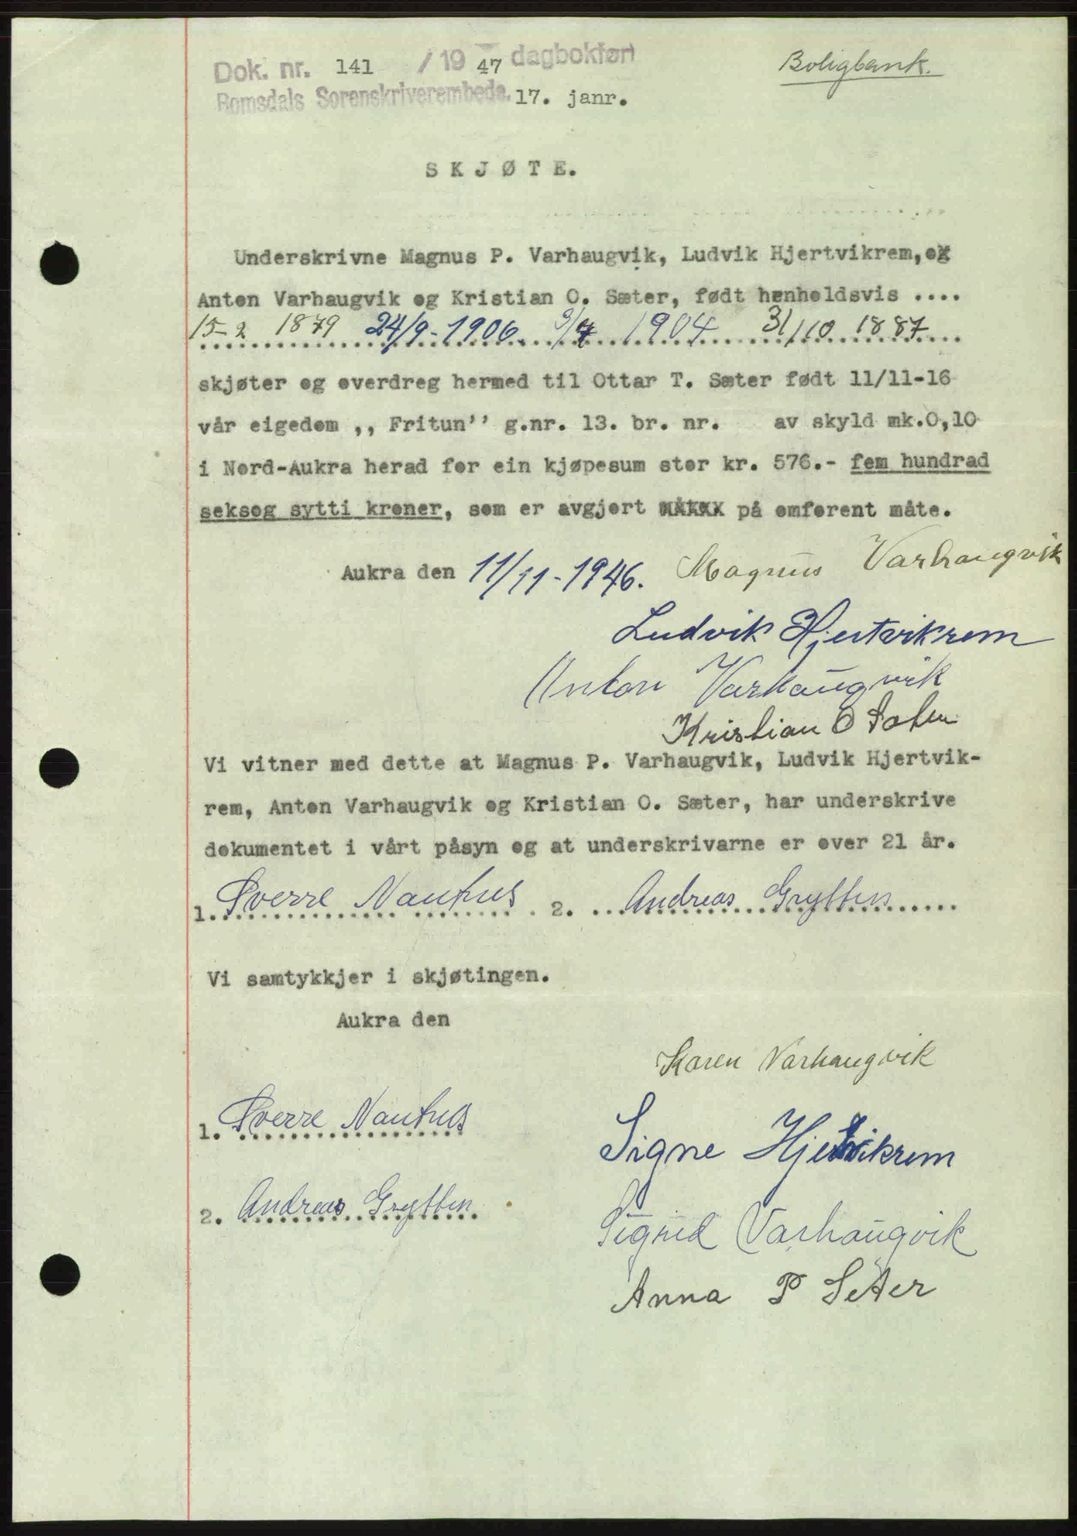 Dok. nr. 141 / 19 47 dagbokført
Boligbank.
Romsdals Sorenskriverembede. 17. janr.
SKJØTE.
Underskrivne Magnus P. Varhaugvik, Ludvik Hjertvikrem, og
Anton Varhaugvik og Kristian O. Sæter, født henholdsvis ....
15-2 1879 24/9-1906 3/7 1904 31/10 1887
skjøter og overdreg hermed til Ottar T. Sæter født 11/11-16
vår eigedom ,, Fritun'' g.nr. 13. br. nr. av skyld mk.0,10
i Nord-Aukra herad for ein kjøpesum stor kr. 576.- fem hundrad
seksog sytti kroner, som er avgjort på omforent måte.
Aukra den 11/11-1946. Magnus Varhaugvik
Ludvik Hjertvikrem
Anton Varhaugvik
Kristian O Sæter
Vi vitner med dette at Magnus P. Varhaugvik, Ludvik Hjertvik-
rem, Anton Varhaugvik og Kristian O. Sæter, har underskrive
dokumentet i vårt påsyn og at underskrivarne er over 21 år.
1. Sverre Nauthus 2. Andreas Grytten
Vi samtykkjer i skjøtingen.
Aukra den
Karen Varhaugvik
1. Sverre Nauthus
Signe Hjertvikrem
2. Andreas Grytten
Sigrid Varhaugvik
Anna P Sæter